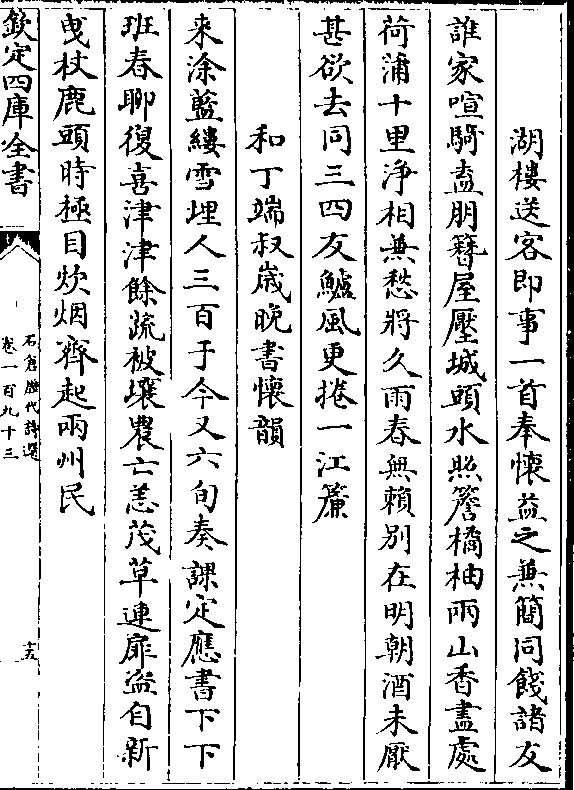 湖樓送客即事一首奉懷益之兼簡同餞諸友
誰家喧騎盍朋簪屋壓城頭水照簷橘柚兩山香盡處
荷蒲十里淨相兼愁將久雨春無賴别在明朝酒未厭
甚欲去同三四友鱸風更捲一江簾
和丁端叔歲晚書懷韻
来涂藍縷雪埋人三百于今又六旬奏課定應書下下
班春聊復喜津津餘疏被壤農亡恙茂草連扉盗自新
曵杖鹿頭時極目炊烟齊起兩州民
欽定四庫全書
石倉歷代詩選
卷一百九十三